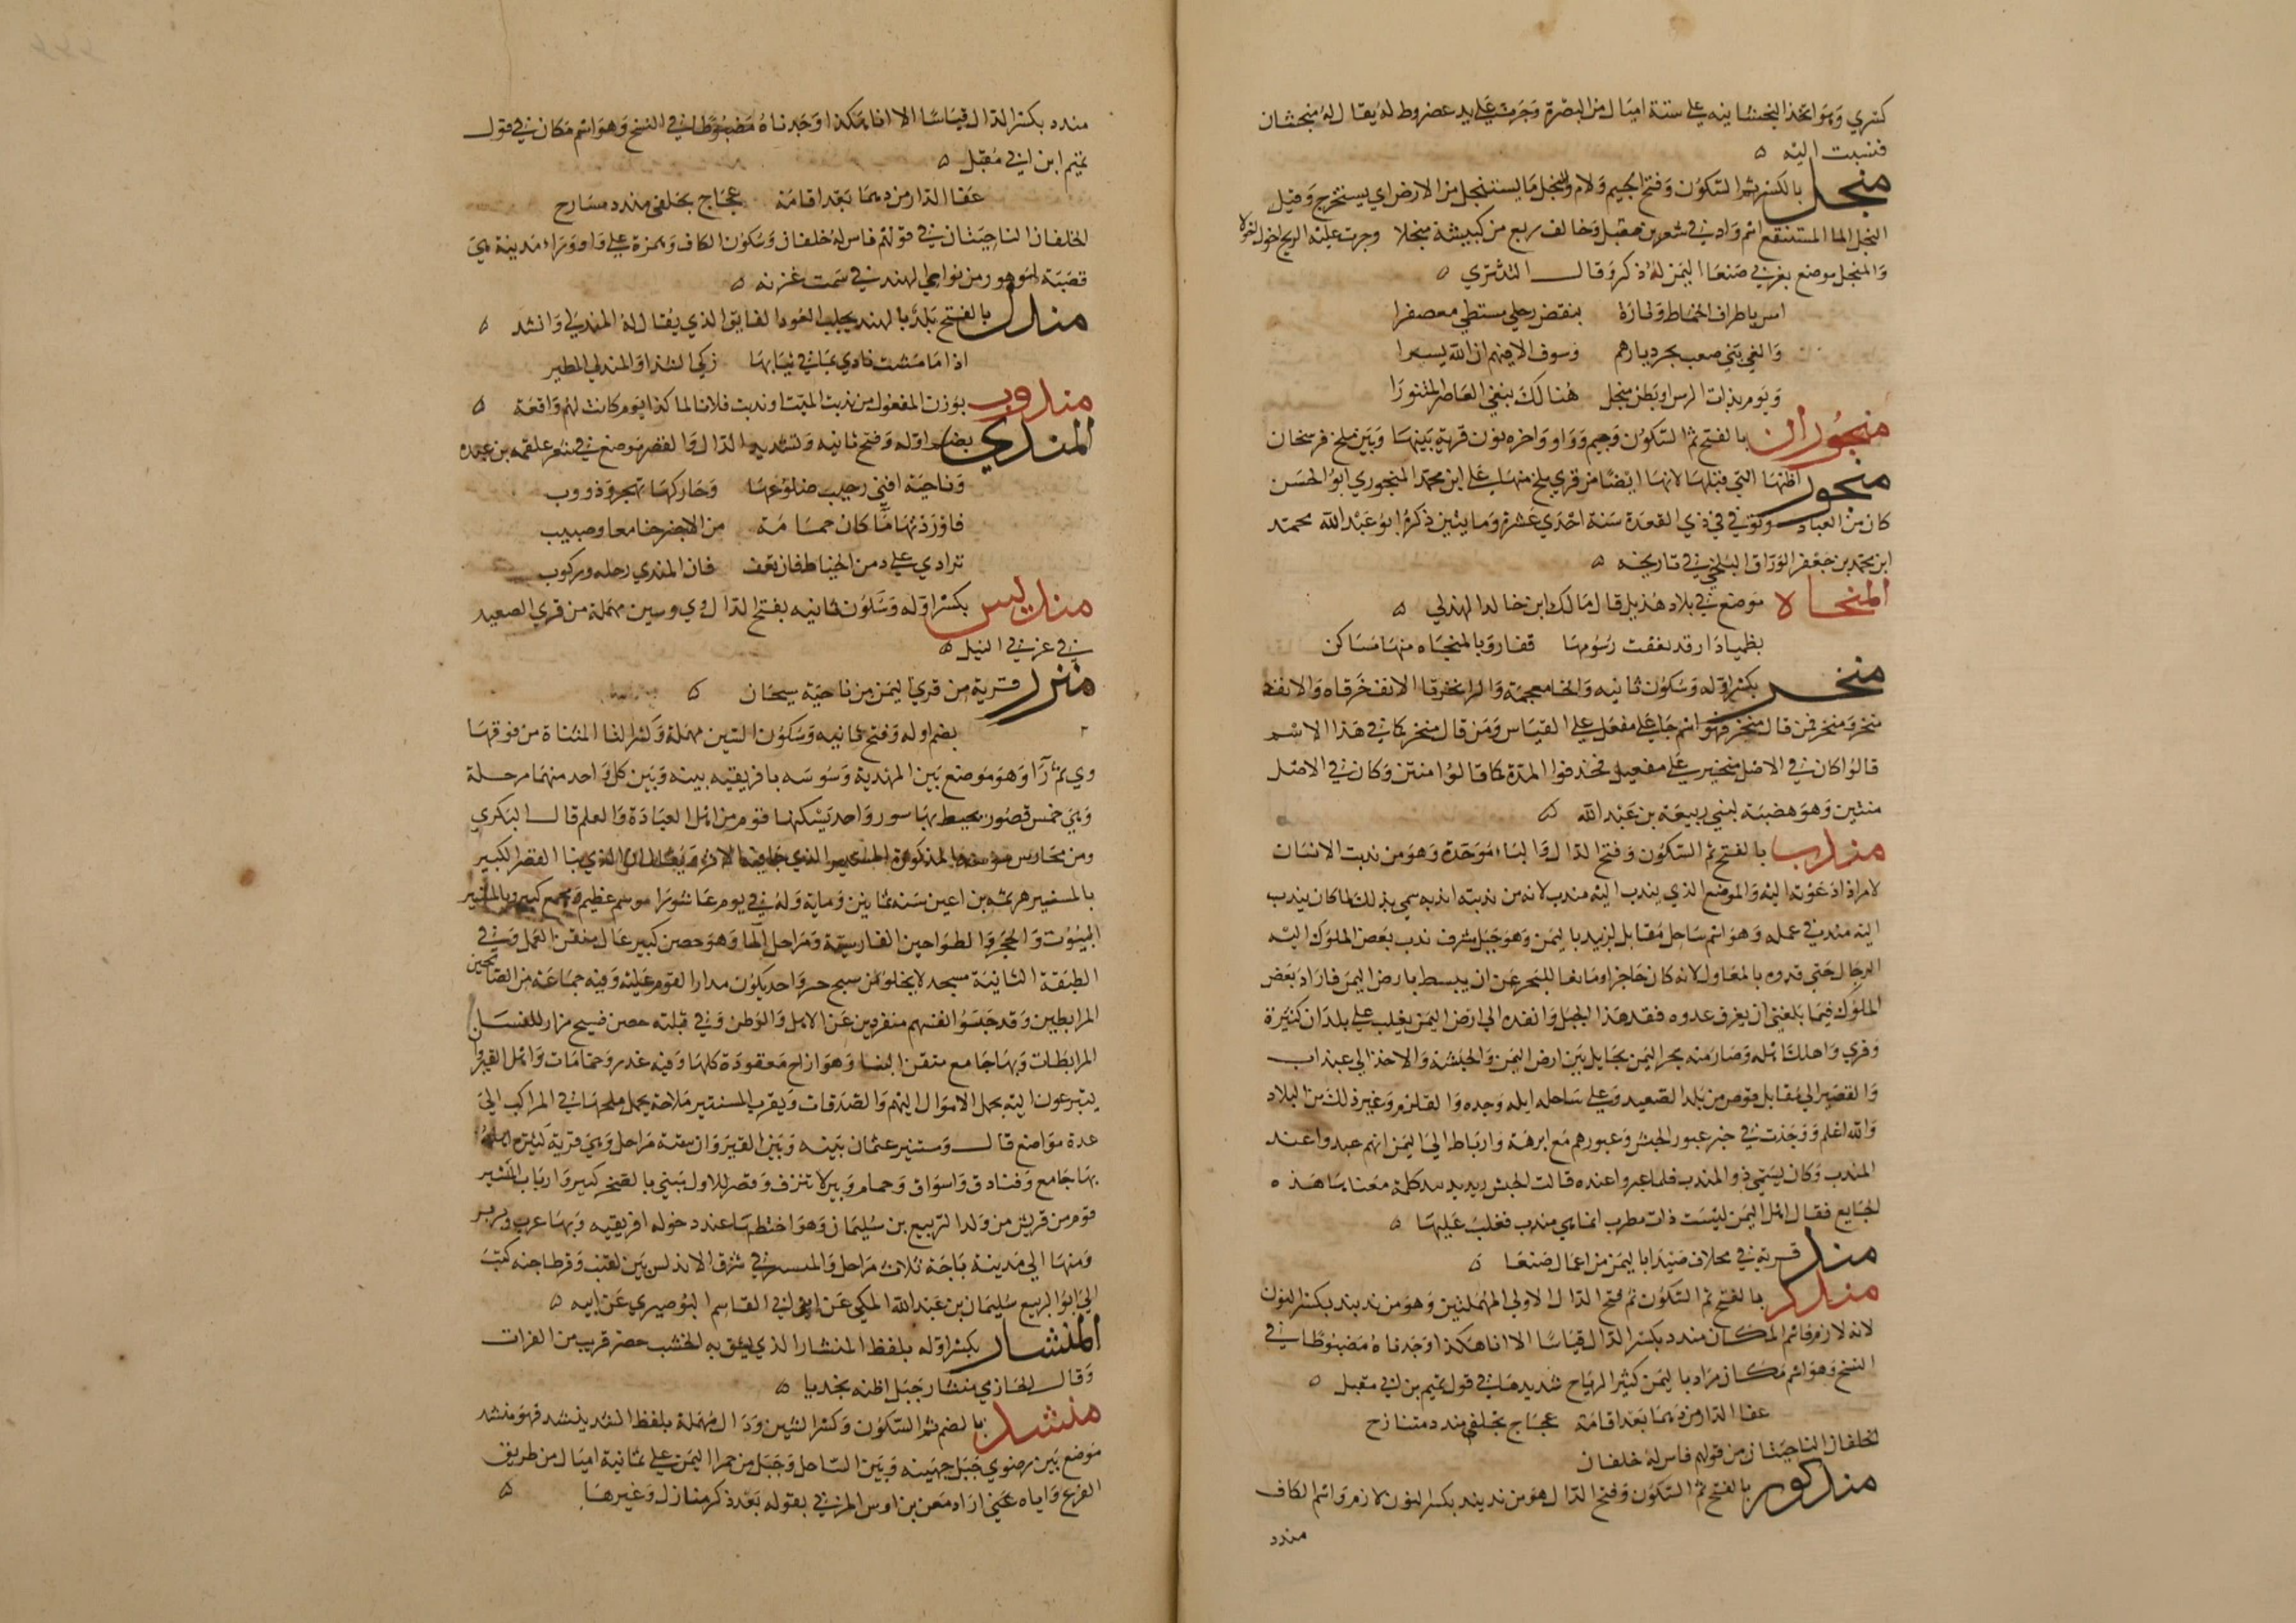 كسري وهو اتخذ المنجشانيه علي ستة اميال من البصرة وجرت علي يد عضروط له يقال له منجشان
فنسبت اليه ه
منجل بالكسر ثم السكون وفتح الجيم ولام والنجل ما يستنجل من الارض اي يستخرج وقيل
النجل الما المستنقع اسم واد في شعر بن مقبل وخالف ربع من كبيشة منجلا وجرت عليه الريح اخول اخولا
والمنجل موضع بغربي صنعا اليمن له ذكر وقال الشنفري ه
امسي باطراف الحماط وتارة بنفض رجلي مسبطي معصفرا
والغي بني صعب بحر ديارهم وسوف الاقيهم ان الله يسرا
ويوم بذات الرس او بطن منجل هنالك نبغي العاصر المتنورا
منجوران بالفتح ثم السكون وجيم وواو واخره نون قرية بينها وبين بلخ فرسخان
منجور اظنها التي قبلها لانها ايضا من قري بلخ منها علي ابن محمد المنجوري ابو الحسن
كان من العباد وتوفي في ذي القعدة سنة احدي عشرة ومايتين ذكره ابو عبد الله محمد
ابن محمد بن جعفر الوراق البلخي في تاريخه ه
المنحاة موضع في بلاد هذيل قال مالك ابن خالد الهذلي ه
بظميا دار قد تعفت رسومها قفار وبالمنحاه منها مساكن
منخر بكسر اوله وسكون ثانيه والخا معجمة والرا
منخر ومنخر فمن قال منخر فهو اسم جا علي مفعل علي القياس ومن قال منخر كما في هذا الاسم
قالوا كان في الاصل منخير علي مفعيل فحذفوا المدة كما قالوا منتن وكان في الاصل
منتين وهو هضبة لبني ربيعة بن عبد الله ه
مندب بالفتح ثم السكون وفتح الدال والباء موحدة وهو من ندبت الانسان
لامر اذا دعوته اليه والموضع الذي يندب اليه مندب لانه من ندبته اندبه سمي بذلك لما كان يندب
اليه مندب في عمله وهو اسم ساحل مقابل لزبيد باليمن وهو جبل مشرف ندب بعض الملوك اليه
الرجال حتي قدوه بالمعاول لانه كان حاجزا ومانعا للبحر عن ان يبسط بارض اليمن فاراد بعض
الملوك فيما بلغني ان يغرق عدوه فقد هذا الجبل وانفذه الي ارض اليمن فغلب علي بلدان كثيرة
وقري واهلك اهله وصار منه بحر اليمن بحايل بين ارض اليمن والحبشة والاخذ الي عيذاب
والقصير الي مقابل قوص من بلد الصعيد وعلي ساحله ايله وجده والقلزم وغير ذلك من البلاد
والله اعلم ووجدت في خبر عبور الحبش وعبورهم مع ابرهة وارباط الي اليمن انهم عبروا عند
المندب وكان يسمي ذو المندب فلما عبروا عنده قالت الحبش
الجايع فقال اهل اليمن ليست ذات مطرب انما هي مندب فغلب عليها ه
مندد قرية في مخلاف صيدا باليمن من اعمال صنعا ه
مندد بالفتح ثم السكون ثم فتح الدال الاولي المهملتين وهو من ند يند بكسر النون
لانه لازم فاسم المكان مندد بكسر الدال قياسا الا انا هكذا وجدناه مضبوطا في
النسخ وهو اسم مكان مراد باليمن كثير الرياح شديدها في قول تميم بن ابي مقبل ه
عفا الدار من دهما بعد اقامة عجاج بخلفي مندد متنازح
الخلفان الناحيتان من قولهم فاس له خلفان
مندكور بالفتح ثم السكون وفتح الدال هو من ند يند بكسر النون لازم واسم الكاف
مندد
مندد بكسر الدال قياسا الا انا هكذا وجدناه مضبوطا في النسخ وهو اسم مكان في قول
تميم ابن ابي مقبل ه
عفا الدار من دهما بعد اقامة عجاج بخلفي مندد مسارح
الخلفان الناحيتان في قولهم فاس له خلفان وسكون الكاف وهمزة علي واو وراء مدينة هي
قصبة لهوهور من نواحي الهند في سمت غزنه ه
مندل بالفتح بلد بالهند يجلب العود الفايق الذي يقال له المندلي وانشد ه
اذا ما مشت نادي بما في ثيابها زكي الشذا والمندلي المطير
مندوب بوزن المفعول من ندبت الميت او ندبت فلانا لما كذا يوم كانت لهم واقعة ه
المندي بضم اوله وفتح ثانيه وتشديد الدال والقصر موضع في شعر علقمه بن عبده
وناجية افني رجيب ضلوعها وحاركها تهجر ودووب
فاوردتها ما كان جمامه من الاجن حنا معا وصبيب
ترادي علي دمن الحياض فان تعف فان المندي رحله وركوب
منديس بكسر اوله وسكون ثانيه بفتح الدال وي وسين مهملة من قري الصعيد
في غربي النيل ه
منزر قرية من قري اليمن من ناحية سيحان ه
بضم اوله وفتح ثانيه وسكون السين مهملة وكسر التا المثناة من فوقها
وي ثم را وهو موضع بين المهدية وسوسه بافريقيه بينه وبين كل واحد منهما مرحلة
وهي خمس قصور يحيط بها سور واحد يسكنها قوم من اهل العبادة والعلم قال البكري
ومن محارس سوسه المذكورة المنستير الذي جا فيه الاثر ويقال ان الذي بنا القصر الكبير
بالمنستير هرثمه بن اعين سنه ثمانين وماية وله في يوم عاشورا موسم عظيم ومجمع كبير وبالمنستير
البيوت والحجر والطواحين الفارسية ومراحل الما وهو حصن كبير عال متقن العمل وفي
الطبقة الثانية مسجد لا يخلو من شيخ خير واحد يكون مدار القوم عليه وفيه جماعة من الصالحين
المرابطين وقد حبسوا انفسهم منفردين عن الاهل والوطن وفي قبلته حصن فسيح مزار للنسا
المرابطات وبها جامع متقن البنا وهو ازاج معقودة كلها وفيه غدر وحمامات واهل القيروان
يتبرعون اليه بحمل الاموال اليهم والصدقات وبقرب المنستير ملاحة يحمل ملحها في المراكب الي
عدة مواضع قال ومنستير عثمان بينه وبين القيروان ستة مراحل وهي قرية كبيرة اهلة
بها جامع وفنادق واسواق وحمام وبير لا تنزف وقصر للاول مبني بالصخر كبير وارباب المنستير
قوم من قريش من ولد الربيع بن سليمان وهو اختطها عند دخوله افريقيه وبها عرب وبربر
ومنها الي مدينة باجة ثلاث مراحل والمنستير في شرق الاندلس بين لقنت وقرطاجنه كتب
الي ابو الربيع سليمان بن عبد الله المكي عن ابي القاسم البوصيري عن ابيه ه
المنشار بكسر اوله بلفظ المنشار الذي يشق به الخشب حصن قريب من الفرات
وقال الحازمي منشار جبل اظنه نجديا ه
منشد بالضم ثم السكون وكسر الشين ودال مهملة بلفظ انشد ينشد فهو منشد
موضع بين رضوي جبل جهينه وبين الساحل وجبل من حمرا اليمن علي ثمانية اميال من طريق
الفرع واياه عني اراد معن بن اوس المزني بقوله بعد ذكر منازل وغيرها ه